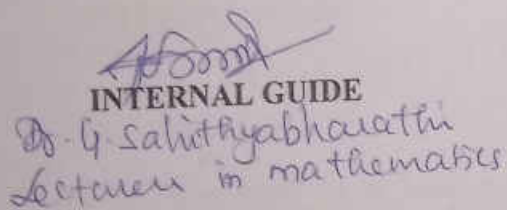 INTERNAL GUIDE
Dr. G. Sahithyabharathi
Lecturer in mathematics